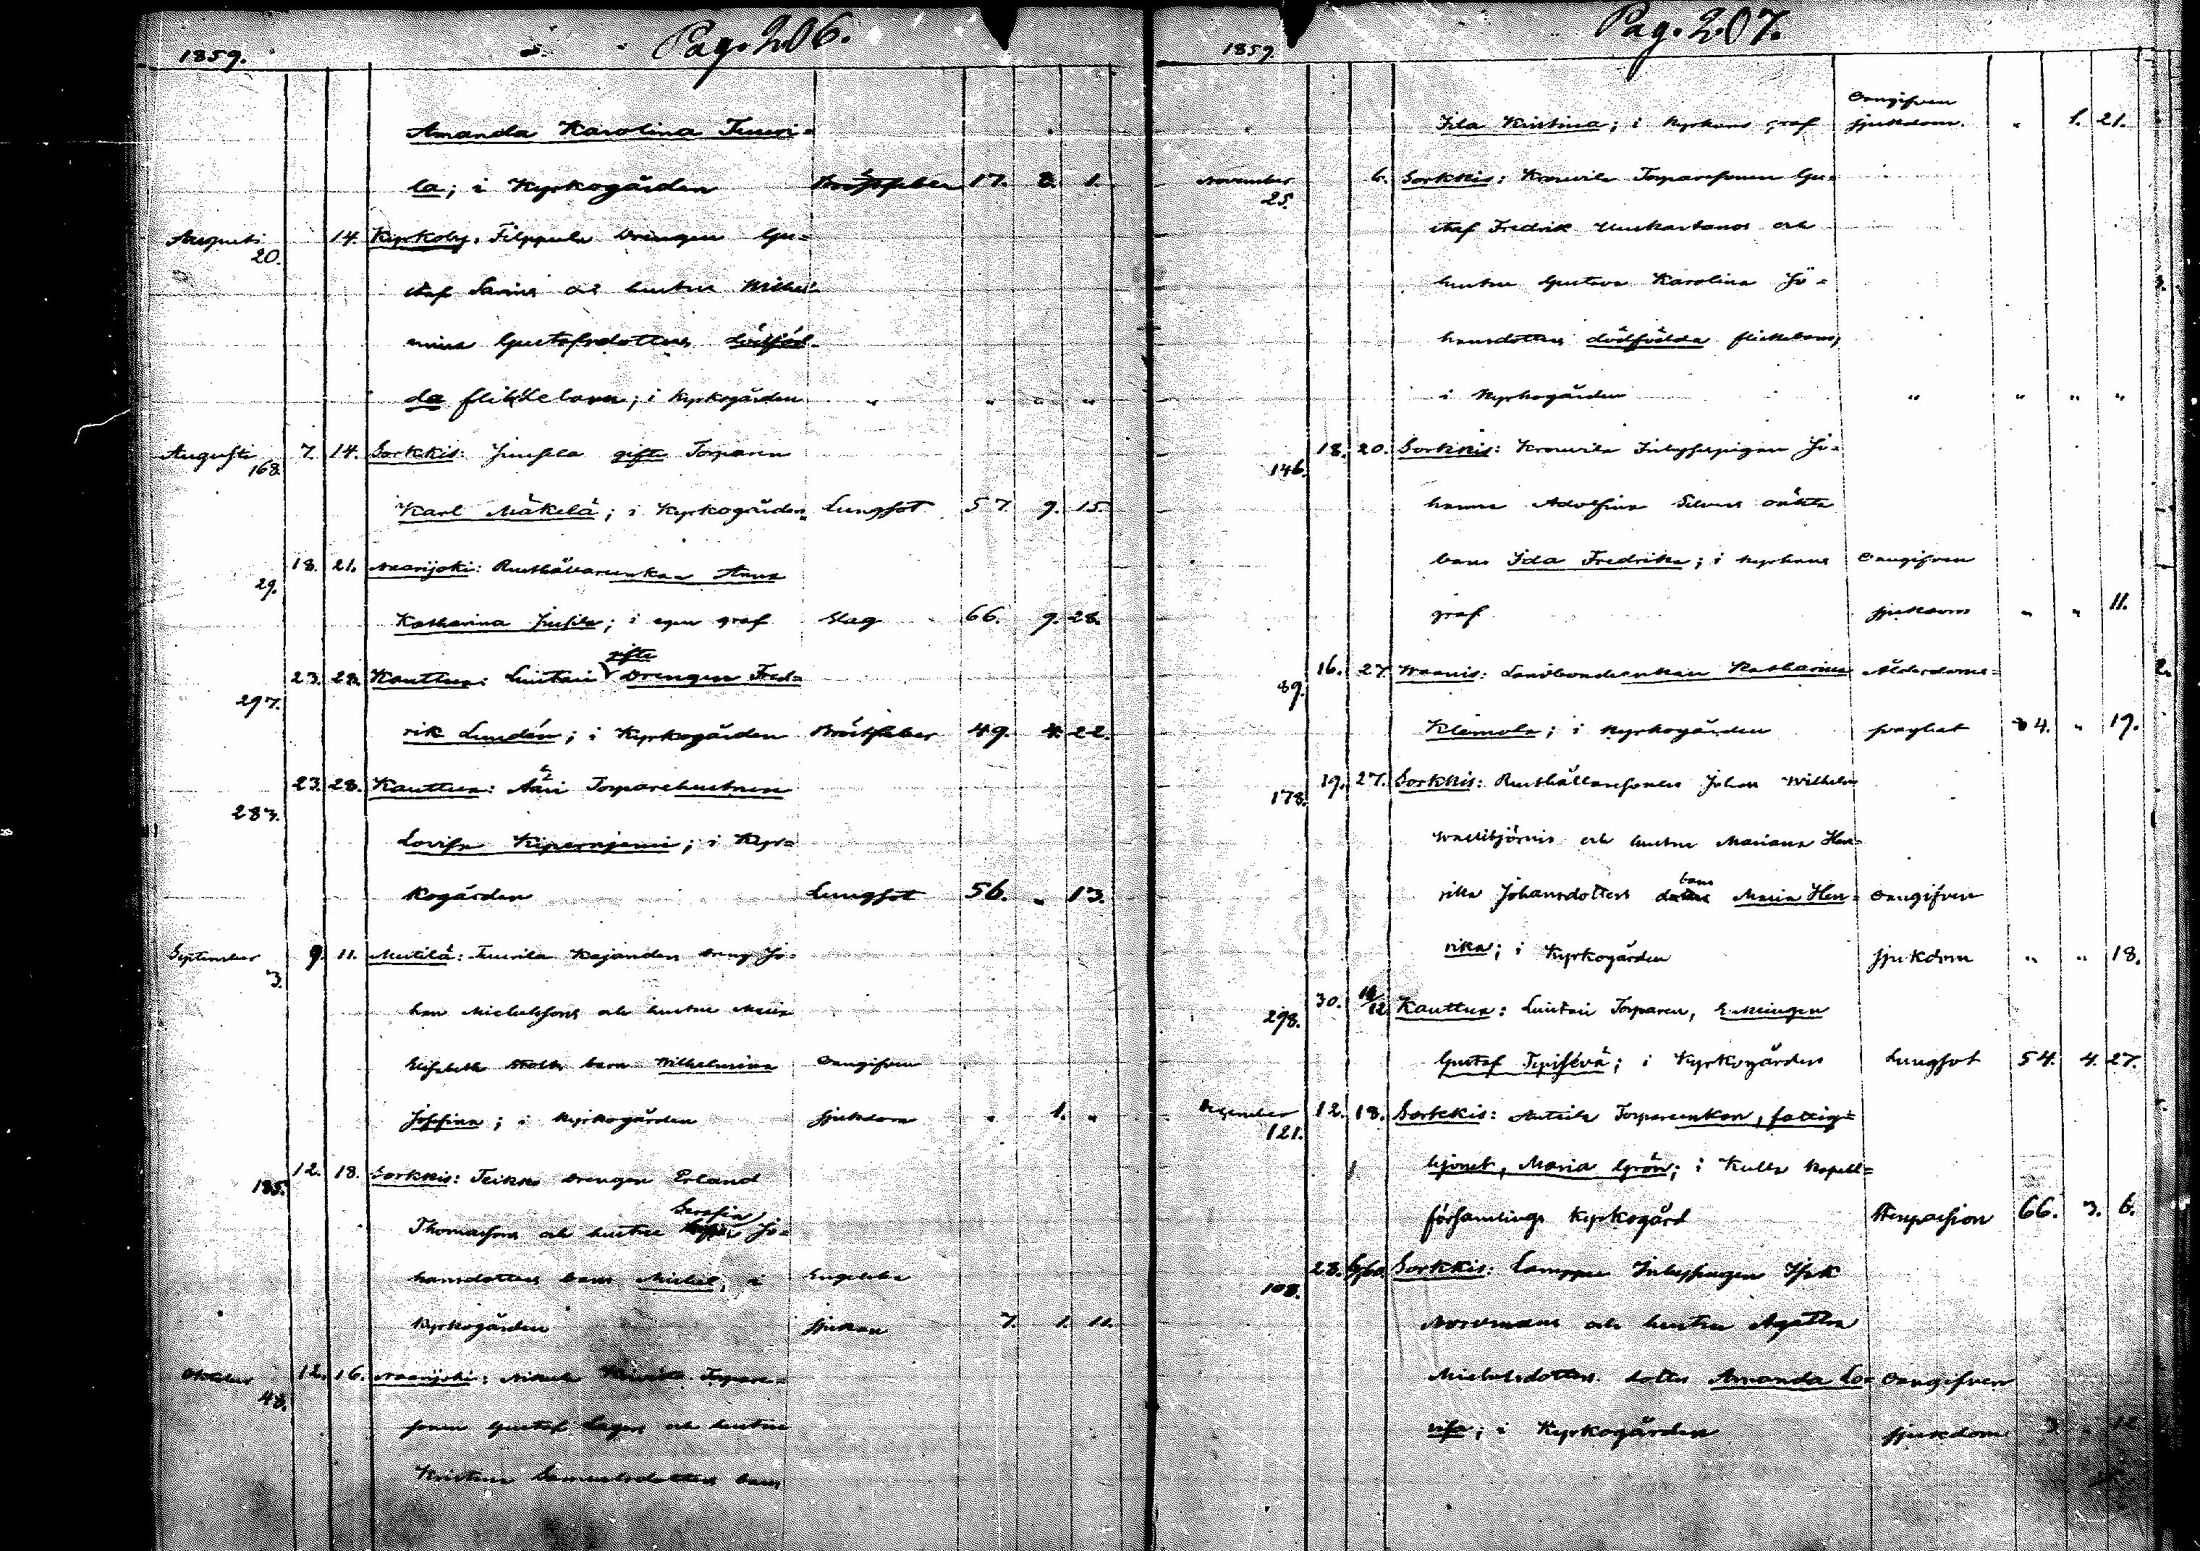 Pag. 206.
1859.
Amanda Karolina Tuuri=
la; i Kyrkogården Bröstfeber 17. 8. 1.
Augusti 20. 14. Kyrkoby. Filppula Drengen Gu=
staf och hustru Wilhel=
mina Gustafsdotters dödföd=
da flickebarn; i Kyrkogården " " " "
Augusti 168. 7. 14. Sorkkis: Jussila gifte Torparen
Karl Mäkelä; i Kyrkogården Lungsot 57. 9. 15.
29. 18. 21. Naarijoki: Rusthållarenkan Anna
Katharina Jussila; i egen graf Slag 66. 9. 28.
297. 23. 28. Kauttua: Luistari gifte Drengen Fred=
rik Lundén; i Kyrkogården Bröstfeber 49. 4. 22.
283. 23. 28. Kauttua: Torparehustrun
Lovisa; i Kyr=
kogården Lungsot 56. " 13.
September 3. 9. 11. Mestilä: Tuurila Kajanders Dreng Jo=
han Michelssons och hustru Maria
Elisabeth barn Wilhelmina Oangifven
Josefina; i Kyrkogården sjukdom " 1. "
185. 12. 18. Sorkkis: Teikko Drengen Erland
Thomassons och hustru Serafia Jo=
hansdotters barn Michel; i Engelska
Kyrkogården sjukan 7. 1. 11.
Oktober 48. 12. 16. Naarijoki: Torpare=
sonen Gustaf Lagers och hustru
Kristina Samuelsdotters barn
Pag. 207.
1859.
Ida Kristina; i Kyrkans graf Oangifven sjukdom. " 1. 21.
November 25. 6. Sorkkis: Krouvila Torparesonen Gu=
staf Fredrik och
hustru Gustava Karolina Jo=
hansdotters dödfödda flickebarn;
i Kyrkogården " " " "
146. 18. 20. Sorkkis: Krouvila Inhysespigan Jo=
hanna Adolfina oäkta
barn Ida Fredrika; i Kyrkans Oangifven
graf sjukdom " " 11.
89. 16. 27. Landbondeenkan Katharina Ålderdoms=
Klemola; i Kyrkogården svaghet 4. " 19.
178. 19. 27. Sorkkis: Rusthållaresonens Johan Wilhelm
och hustru Mariana Hen=
rika Johansdotters barn Maria Hen= Oangifven
rika; i Kyrkogården sjukdom " " 18.
298. 30. Kauttua: Luistari Torparen, E.Mningen
Gustaf; i Kyrkogården Lungsot 54. 4. 27.
December 121. 12. 18. Sorkkis: Anttila Torpareenkan, fattig=
hjonet, Maria Grön; i Kulla Kapell=
församlings Kyrkogård 66. 3. 6.
108. 28. Sorkkis: Lamppu Isak
Nordmans och hustru Agatha
Michelsdotters dotter Amanda Lo= Oangifven
visa; i Kyrkogården sjukdom 3. " 12.